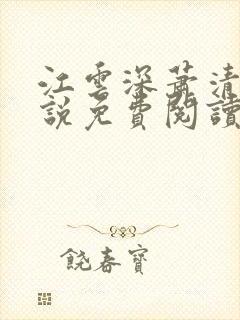 江雲深蕭清
說免費閱讀
饒春寶